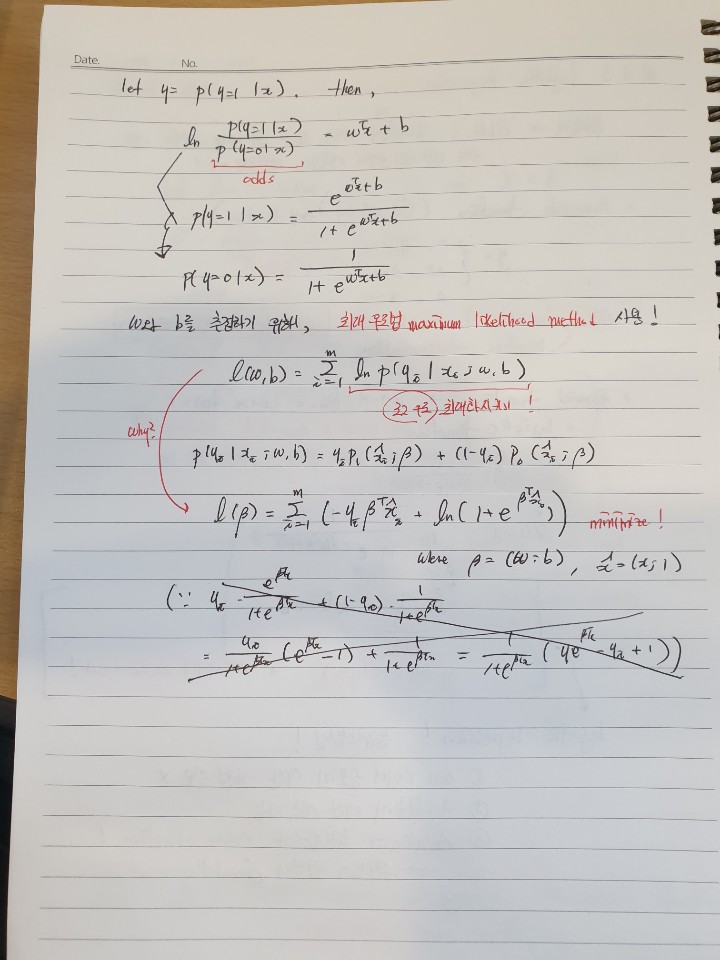 Date. No.
let y = p(y=1 | x). then,
ln p(y=1 | x) / p(y=0 | x) = wᵀx + b
odds
p(y=1 | x) = e^(wᵀx+b) / (1 + e^(wᵀx+b))
p(y=0 | x) = 1 / (1 + e^(wᵀx+b))
w와 b를 추정하기 위해, 최대우도법 maximum likelihood method 사용!
l(w,b) = Σ_{i=1}^{m} ln p(yᵢ | xᵢ ; w, b)
로그우도 최대화시키기!
why?
p(yᵢ | xᵢ ; w, b) = yᵢ p₁(x̂ᵢ ; β) + (1-yᵢ) p₀(x̂ᵢ ; β)
l(β) = Σ_{i=1}^{m} (-yᵢ βᵀx̂ᵢ + ln(1+e^(βᵀx̂ᵢ))) minimize!
were β = (w ; b), x̂ = (x ; 1)
(∵ yᵢ · e^(βᵀx) / (1+e^(βᵀx)) + (1-yᵢ) · 1 / (1+e^(βᵀx))
= yᵢ / (1+e^(βᵀx)) (e^(βᵀx) - 1) + 1 / (1+e^(βᵀx)) = 1 / (1+e^(βᵀx)) (ye^(βᵀx) - yᵢ + 1))